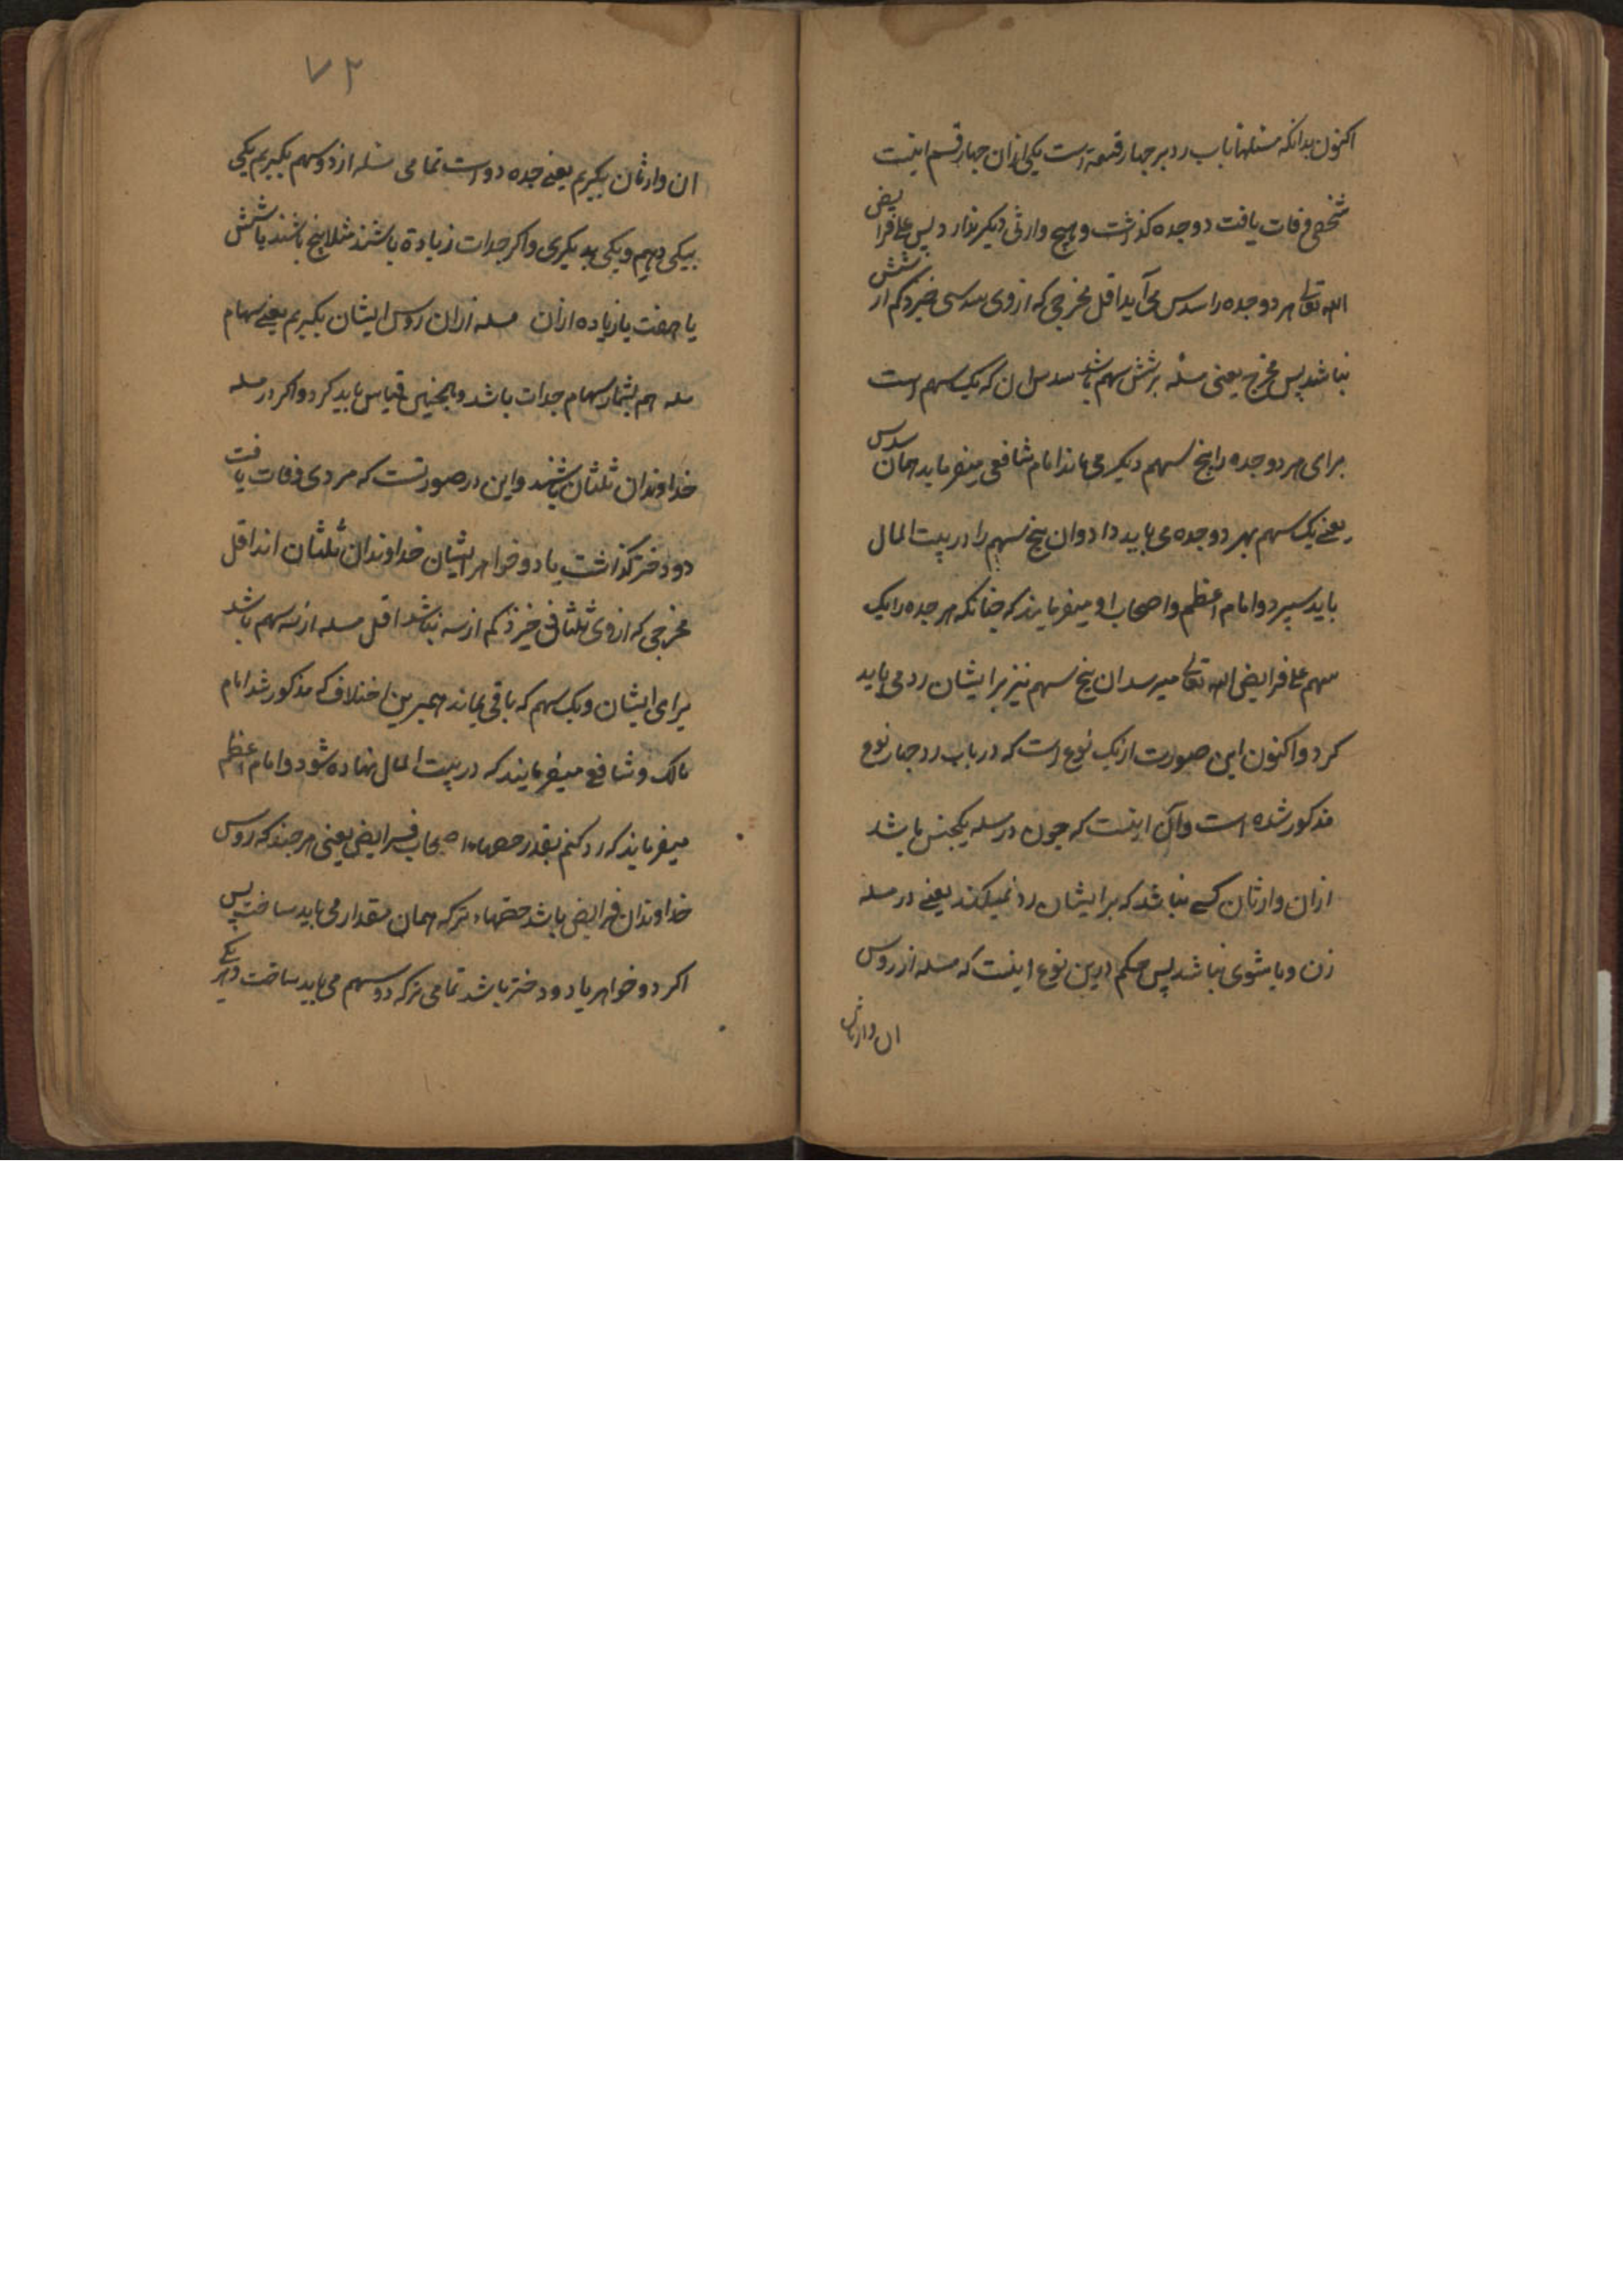 اکنون بدانکه مسئلها باب رد بر جهار قسمة است یکی ازان جهار قسم اینست
شخصی وفات یافت دو جده کذاشت و هیچ وارثی دیکر ندارد پس علی فرایض
الله تعالی هر دو جده را سدس می آید اقل مخرجی که ازوی سدسی خیزد کم از شش
نباشد پس مخرج یعنی مسئله بر شش سهم باشد سدس ان که یک سهم است
برای هر دو جده را پنج سهم دیکر می ماند امام شافعی میفرماید همان سدس
یعنی یک سهم بهر دو جده می باید داد وان پنج سهم را در بیت المال
باید سپرد و امام اعظم و اصحاب او میفرمایند که چنانکه هر جده را یک
سهم علی فرایض الله تعالی میرسد ان پنج سهم نیز بر ایشان رد می باید
کرد و اکنون این صورت از یک نوع است که در باب رد جهار نوع
مذکور شده است و آن اینست که چون در مسله یکجنس باشد
ازان وارثان کسی نباشد که بر ایشان رد نمیکند یعنی در مسله
زن و یا شوی نباشد پس حکم درین نوع اینست که مسله از روس
ان وارثان
۷۲
ان وارثان بکیریم یعنی جده دو است تمامی مسله از دو سهم بکیریم یکی
بیکی دهیم و یکی بدیکری و اکر جدات زیادة باشند مثلا پنج باشند یا شش
یا هفت یا زیاده ازان مسله ازان روس ایشان بکیریم یعنی سهام
مسله هم بشمار سهام جدات باشد و همچنین قیاس باید کرد و اکر در مسله
خداوندان ثلثان باشند و این در صورتست که مردی وفات یافت
دو دختر کذاشت یا دو خواهر ایشان خداوندان ثلثان اند اقل
مخرجی که ازوی ثلثانی خیزد کم از سه نباشد اقل مسله از سه سهم باشد
برای ایشان و یک سهم که باقی بماند همبرین اختلاف که مذکور شد امام
مالک و شافعی میفرمایند که در بیت المال نهاده شود و امام اعظم
میفرماید که رد کنم بقدر حصهاء اصحاب فرایض یعنی هر چند که روس
خداوندان فرایض باشد حصهاء ترکه همان مقدار می باید ساخت پس
اکر دو خواهر یا دو دختر باشد تمامی ترکه دو سهم می باید ساخت و هر یکی